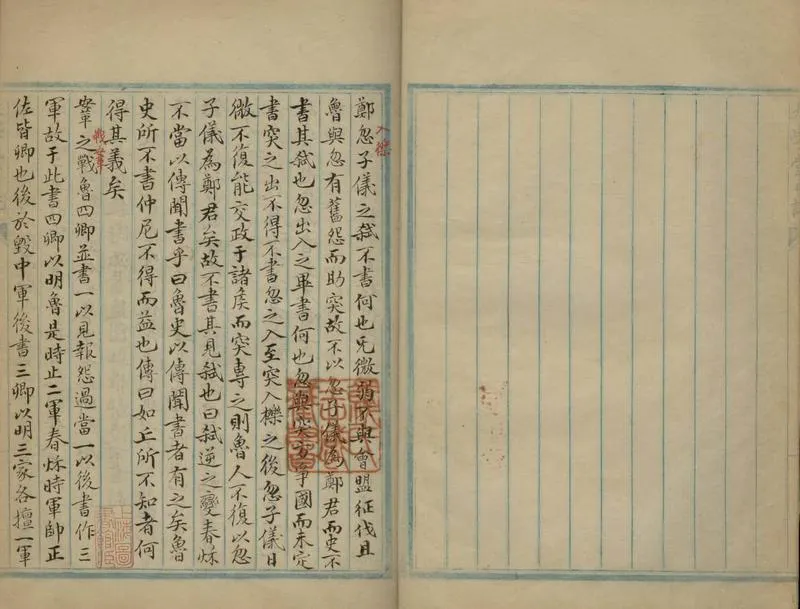 鄭忽子儀之弑不書何也兄微弱不與會盟征伐且
入櫟
魯與忽有舊怨而助突故不以忽子儀為鄭君而史不
書其弑也忽出入之畢書何也忽與突爭國而未定
書突之出不得不書忽之入至突入櫟之後忽子儀日
微不復能交政于諸矦而突專之則魯人不復以忽
子儀為鄭君矣故不書其見弑也曰弑逆之變春秌
不當以傳聞書乎曰魯史以傳聞書者有之矣魯
史所不書仲尼不得而益也傳曰如丘所不知者何
得其義矣
鞌之戰魯四卿並書一以見報怨過當一以後書作三
戰鞌
軍故于此書四卿以明魯是時止二軍春秌時軍帥正
佐皆卿也後於毀中軍後書三卿以明三家各擅一軍